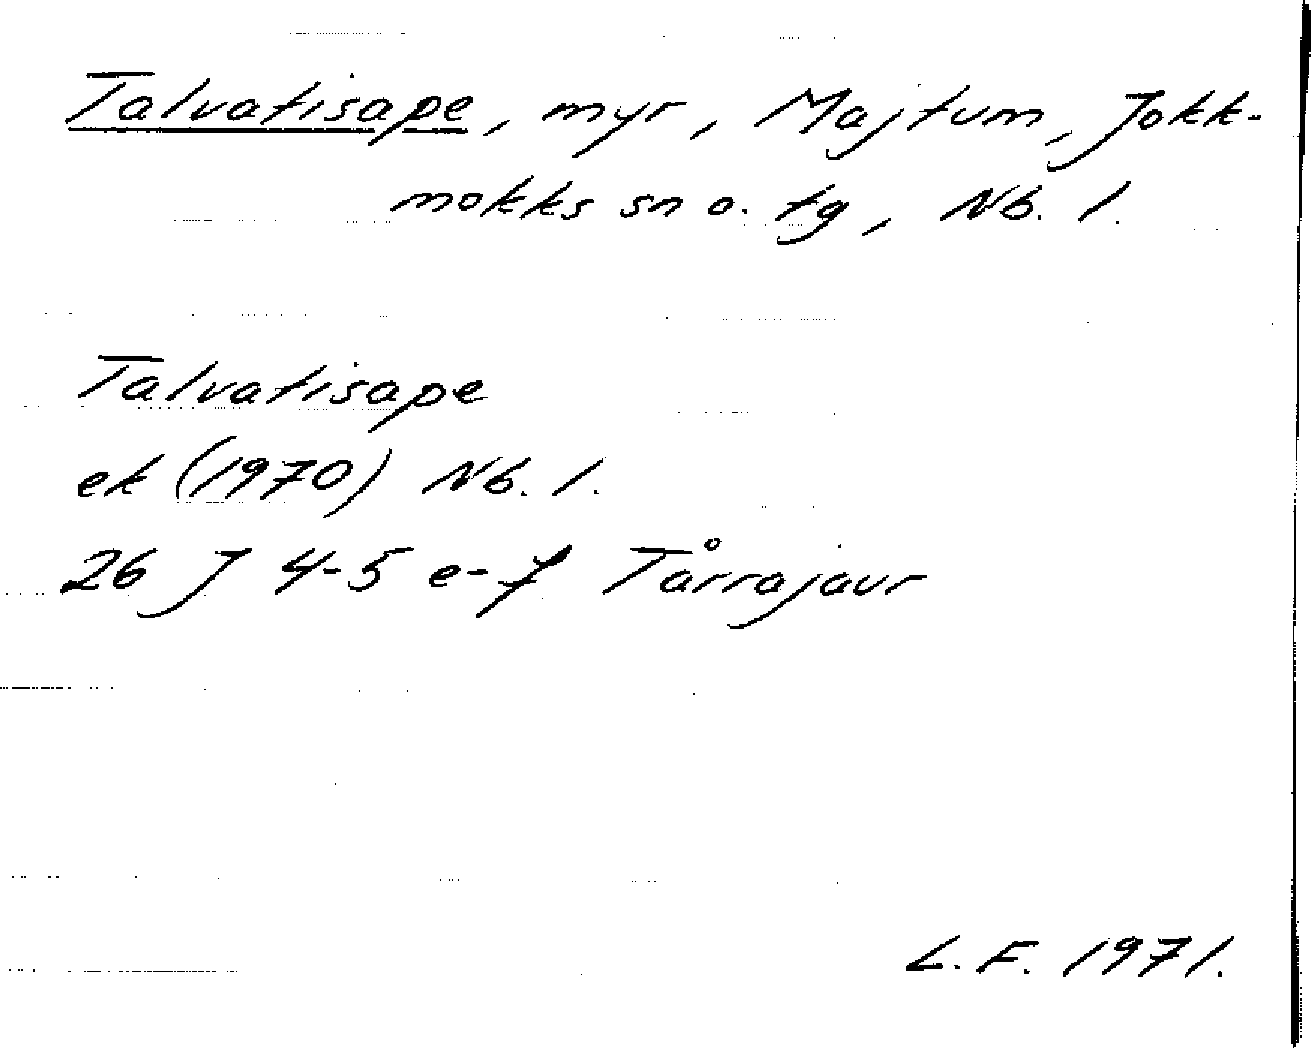 Talvatisape, myr, Majtum, Jokk-
mokks sn o. tg, Nb. l.
Talvatisape
ek (1970) Nb. l.
26 J 4-5 e-f Tårrajaur
L. F. 1971.